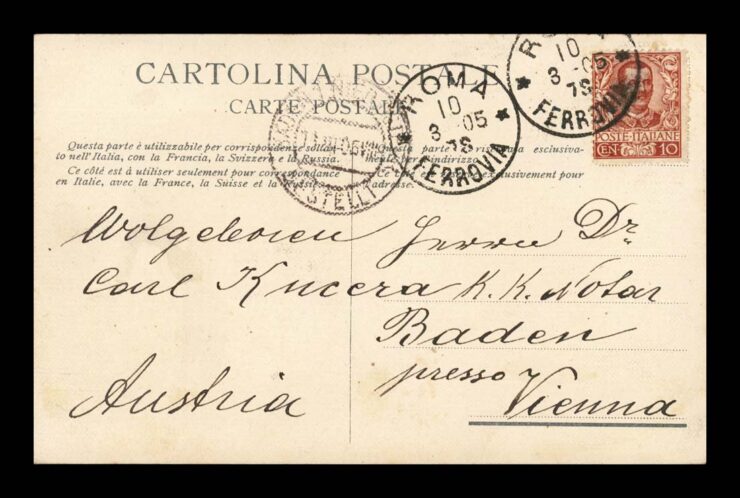 CARTOLINA POSTALE
CARTE POSTALE
Questa parte è utilizzabile per corrispondenze soltan-
to nell'Italia, con la Francia, la Svizzera e la Russia.
Ce côté est à utiliser seulement pour correspondance
en Italie, avec la France, la Suisse et la Russie.
Questa parte è riservata esclusiva-
mente per l'indirizzo.
Ce côté est exclusivement pour
l'adresse.
ROMA
10
3 -05
FERROVIA
10
3 -05
FERROVIA
POSTE·ITALIANE
CEN· 10
BESTELLT
Wolgeboren Herrn Dr
Carl Kucera K. K. Notar
Baden
presso
Austria Vienna